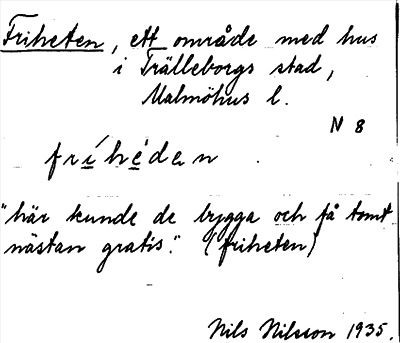 Friheten, ett område med hus
i Trälleborgs stad,
Malmöhus l.
N 8
fríhédan
"här kunde de bygga och få tomt
nästan gratis". (friheten)
Nils Nilsson 1935.